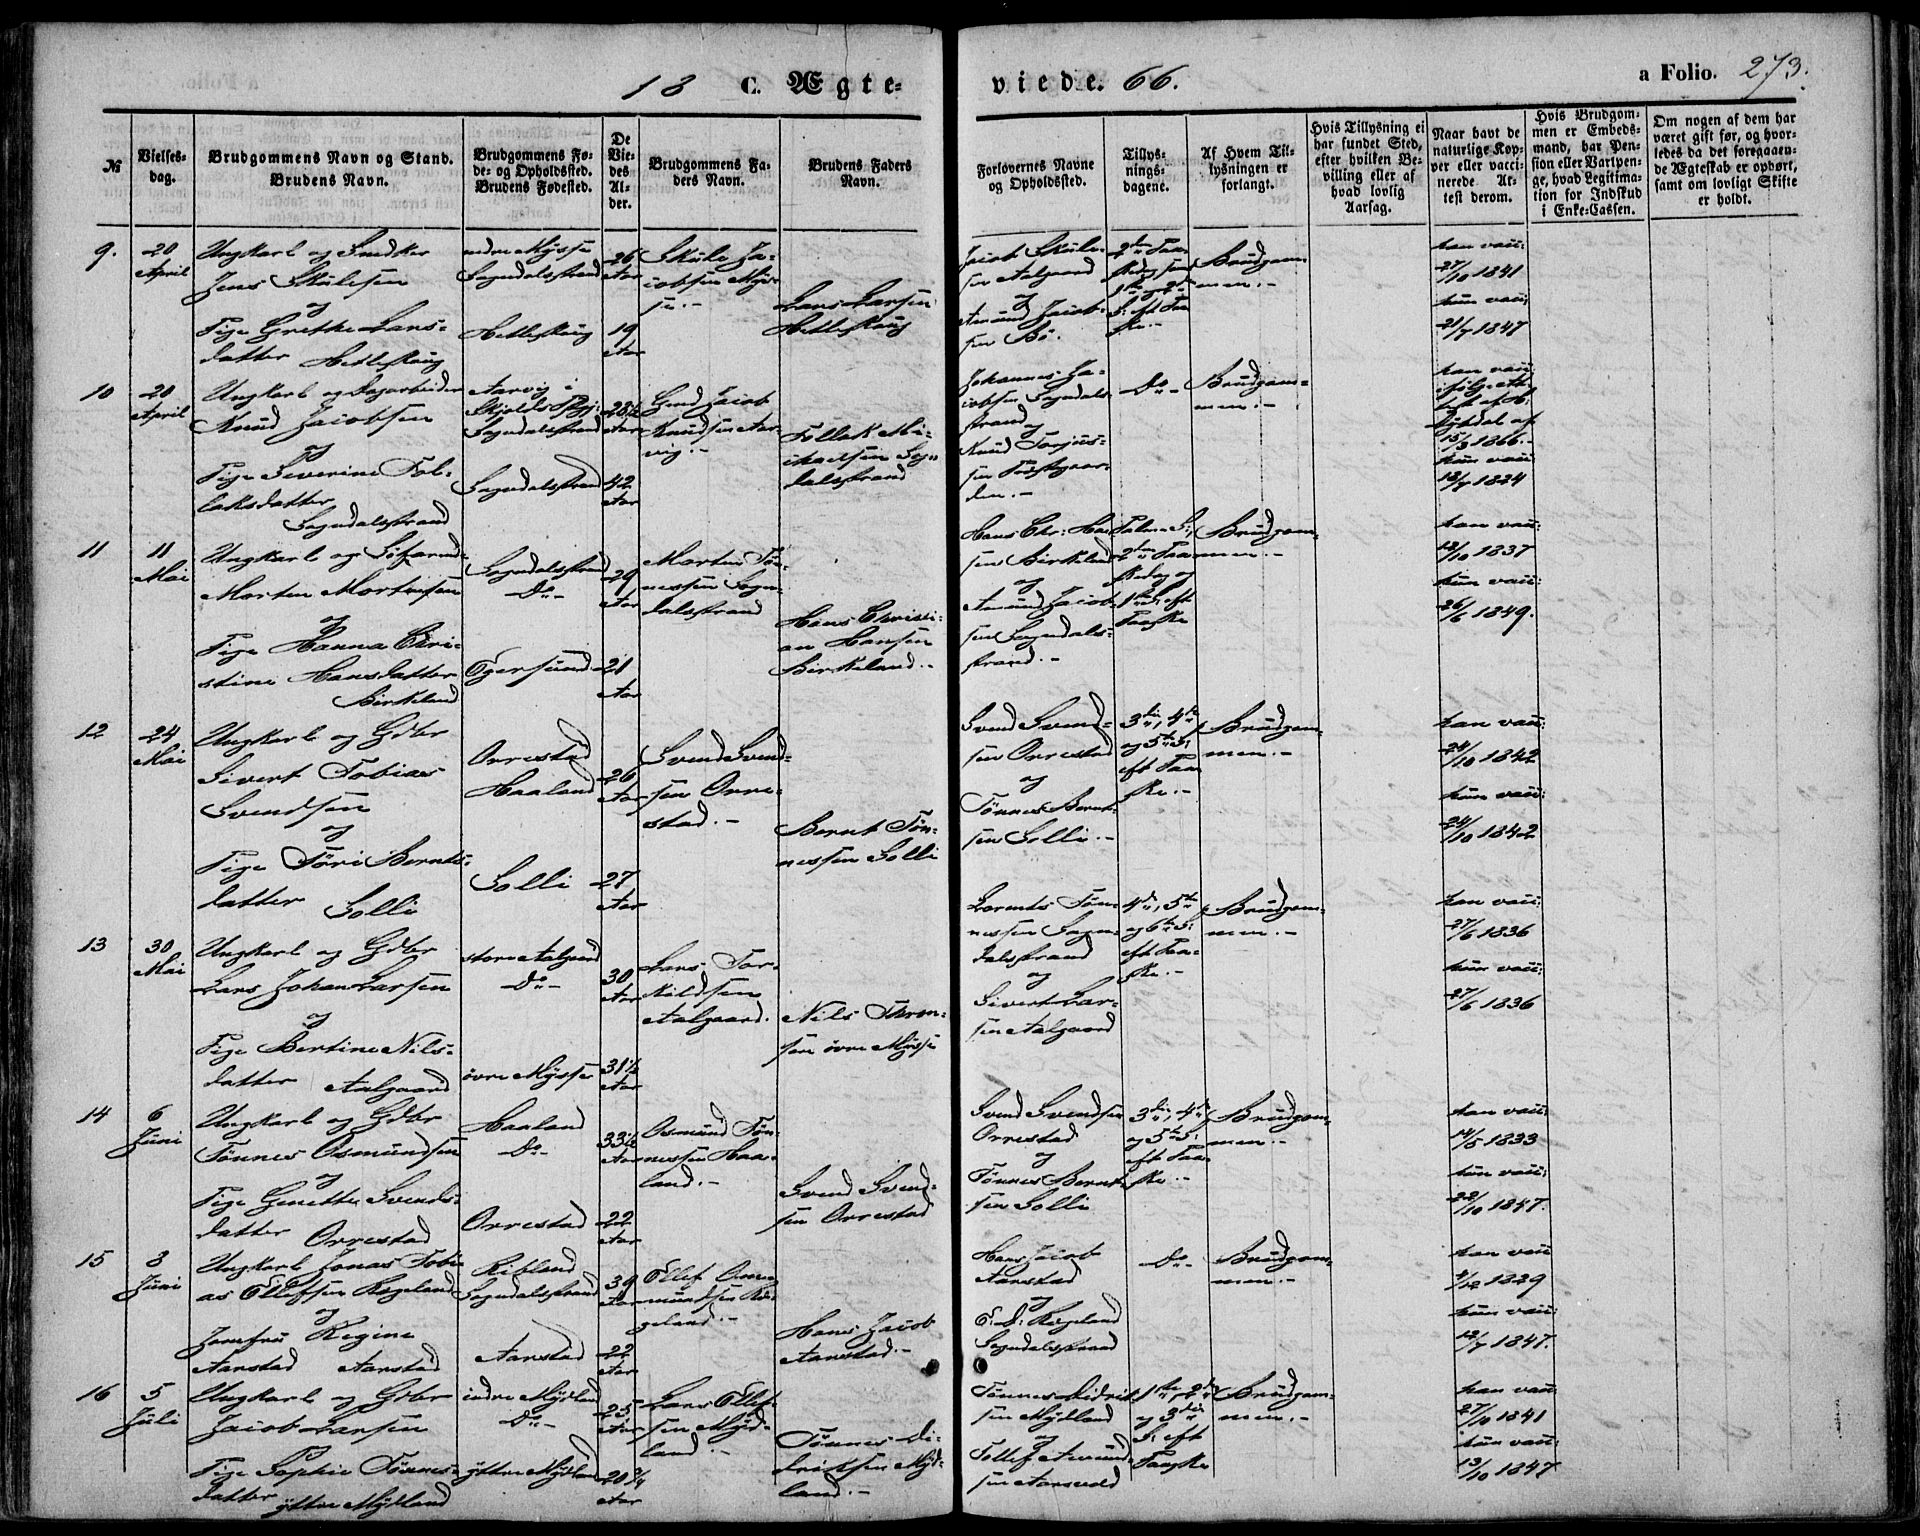 18 C. Ægte-
viede. 66.
a Folio. 273.
№
Vielses-
dag.
Brudgommens Navn og Stand.
Brudens Navn.
Brudgommens Fø-
de- og Opholdssted.
Brudens Fødested.
De
Vie-
des
Al-
der.
Brudgommens Fa-
ders Navn.
Brudens Faders
Navn.
Forlovernes Navne
og Opholdssted.
Tillys-
nings-
dagene.
Af Hvem Til-
lysningen er
forlangt.
Hvis Tillysning ei
har fundet Sted,
efter hvilken Be-
villing eller af
hvad lovlig
Aarsag.
Naar havt de
naturlige Kop-
per eller vacci-
nerede. At-
test derom.
Hvis Brudgom-
men er Embeds-
mand, har Pen-
sion eller Vartpen-
ge, hvad Legitima-
tion for Indskud
i Enke-Cassen.
Om nogen af dem har
været gift før, og hvor-
ledes da det foregaaen-
de Ægteskab er ophørt,
samt om lovligt Skifte
er holdt.
9.
20
April
Ungkarl og Snedker
Jens Skulesen
og
Pige Grethe Lars-
datter Hetleskoug
nedre Mysse
Sogndalsstrand
Hetleskoug
26
Aar
19
Aar
Skule Ja-
cobsen Mys-
se.-
Lars Larsen
Hetleskoug
Jacob Skule-
sen Aalgaard
og
Amund Jacob-
sen Bø.
Brudgom-
men.-
han vacc:
27/10 1841
hun vacc:
21/7 1847
10
20
April
Ungkarl og Dagarbeider
Knud Jacobsen
og
Pige Severine Tol-
laksdatter
Sogndalsstrand
Aarvig i
Skjolds Pgj:
Sogndalsstrand
Sogndalsstrand
28½
Aar
42
Aar
Gmd Jacob
Knudsen Aar-
vig.-
Tollak Mi-
chaelsen Sogn-
dalsstrand
Johannes Ja-
cobsen Sogndals-
strand
og
Knud Torjus-
sen Præstgaar-
den.-
Do-
Brudgom-
men.-
han vacc:
15/3 1866.-
hun vacc:
12/7 1824
11
11
Mai
Ungkarl og Søfarend-
Morten Mortensen
og
Pige Hanna Chri-
stine Hansdatter
Birkeland
Sogndalsstrand
Do-
Egersund
29
Aar
21
Aar
Morten Tøn-
nessen Sogn-
dalsstrand
Hans Christi-
an Hansen
Birkeland.-
Hans Chr: Han-
sen Birkeland
og
Amund Jacob-
sen Sogndals-
strand.-
Palme S:
2den Paa-
skedag og
1ste S: eft
Paaske
Brudgom-
men.-
han vacc:
12/10 1837
hun vacc:
26/6 1849.
12
24
Mai
Ungkarl og Gdbr
Sivert Tobias
Svendsen
og
Pige Tøri Bernts-
datter
Solli
Orrestad
Haaland
Solli
26
Aar
27
Aar
Svend Svend-
sen Orre-
stad.-
Bernt Tøn-
nessen Solli
Svend Svend-
sen Orrestad
og
Tønnes Bernt-
sen Solli.-
3die, 4de
og 5te S:
eft Paa-
ske.-
Brudgom-
men.-
han vacc:
24/10 1842
hun vacc:
24/10 1842
13
30
Mai
Ungkarl og Gdbr
Lars Johan Larsen
og
Pige Bertine Nils-
datter Aalgaard
store Aalgaard
Do-
øvre Mysse
30
Aar
31½
Aar
Lars Tor-
kildsen
Aalgaard.
Nils Thron-
sen øvre Mysse
Lorents Tøn-
nessen Sogn-
dalsstrand
og
Sivert Lar-
sen Aalgaard
4de, 5te
og 6te S:
eft Paa-
ske.-
Brudgom-
men.-
han vacc:
27/6 1836
hun vacc:
27/6 1836
14
6
Juni
Ungkarl og Gdbr
Tønnes Osmundsen
og
Pige Genette Svends-
datter Orrestad
Haaland
Do-
Orrestad
33½
Aar
22
Aar
Osmund Tøn-
nessen Haa-
land.-
Svend Svend-
sen Orrestad
Svend Svendsen
Orrestad
og
Tønnes Bernt-
sen Solli
3die, 4de
og 5te S:
eft Paa-
ske.-
Brudgom-
men.-
han vacc:
14/5 1833
hun vacc:
22/10 1847.
15
3
Juni
Ungkarl Jonas Tobi-
as Ellefsen Rægeland
og
Jomfru Regine
Aarstad Aarstad
Sogndalsstrand
Aarstad
39
Aar
22
Aar
Ellef Om-
mundsen Ræ-
geland.-
Hans Jacob
Aarstad.-
Hans Jacob
Aarstad
og
Rægeland
Sogndalsstrand
Do-
Brudgom-
men.-
han vacc
1829
hun vacc:
12/7 1847.
16
5
Juli
Ungkarl og Gdbr
Jacob Larsen
og
Pige Sophie Tønnes-
datter yttre Mydland
indre Mydland
Do-
yttre Mydland
25
Aar
20¾
Aar
Lars Ellef-
sen Myd-
land.-
Tønnes Di-
driksen Myd-
land.-
Tønnes Didrik-
sen Mydland
og
Tollef Amund-
sen Aarsvold
1ste, 2de
og 3die
S: eft
Paaske
Brudgom-
men.-
han vacc:
27/10 1841
hun vacc:
13/10 1847